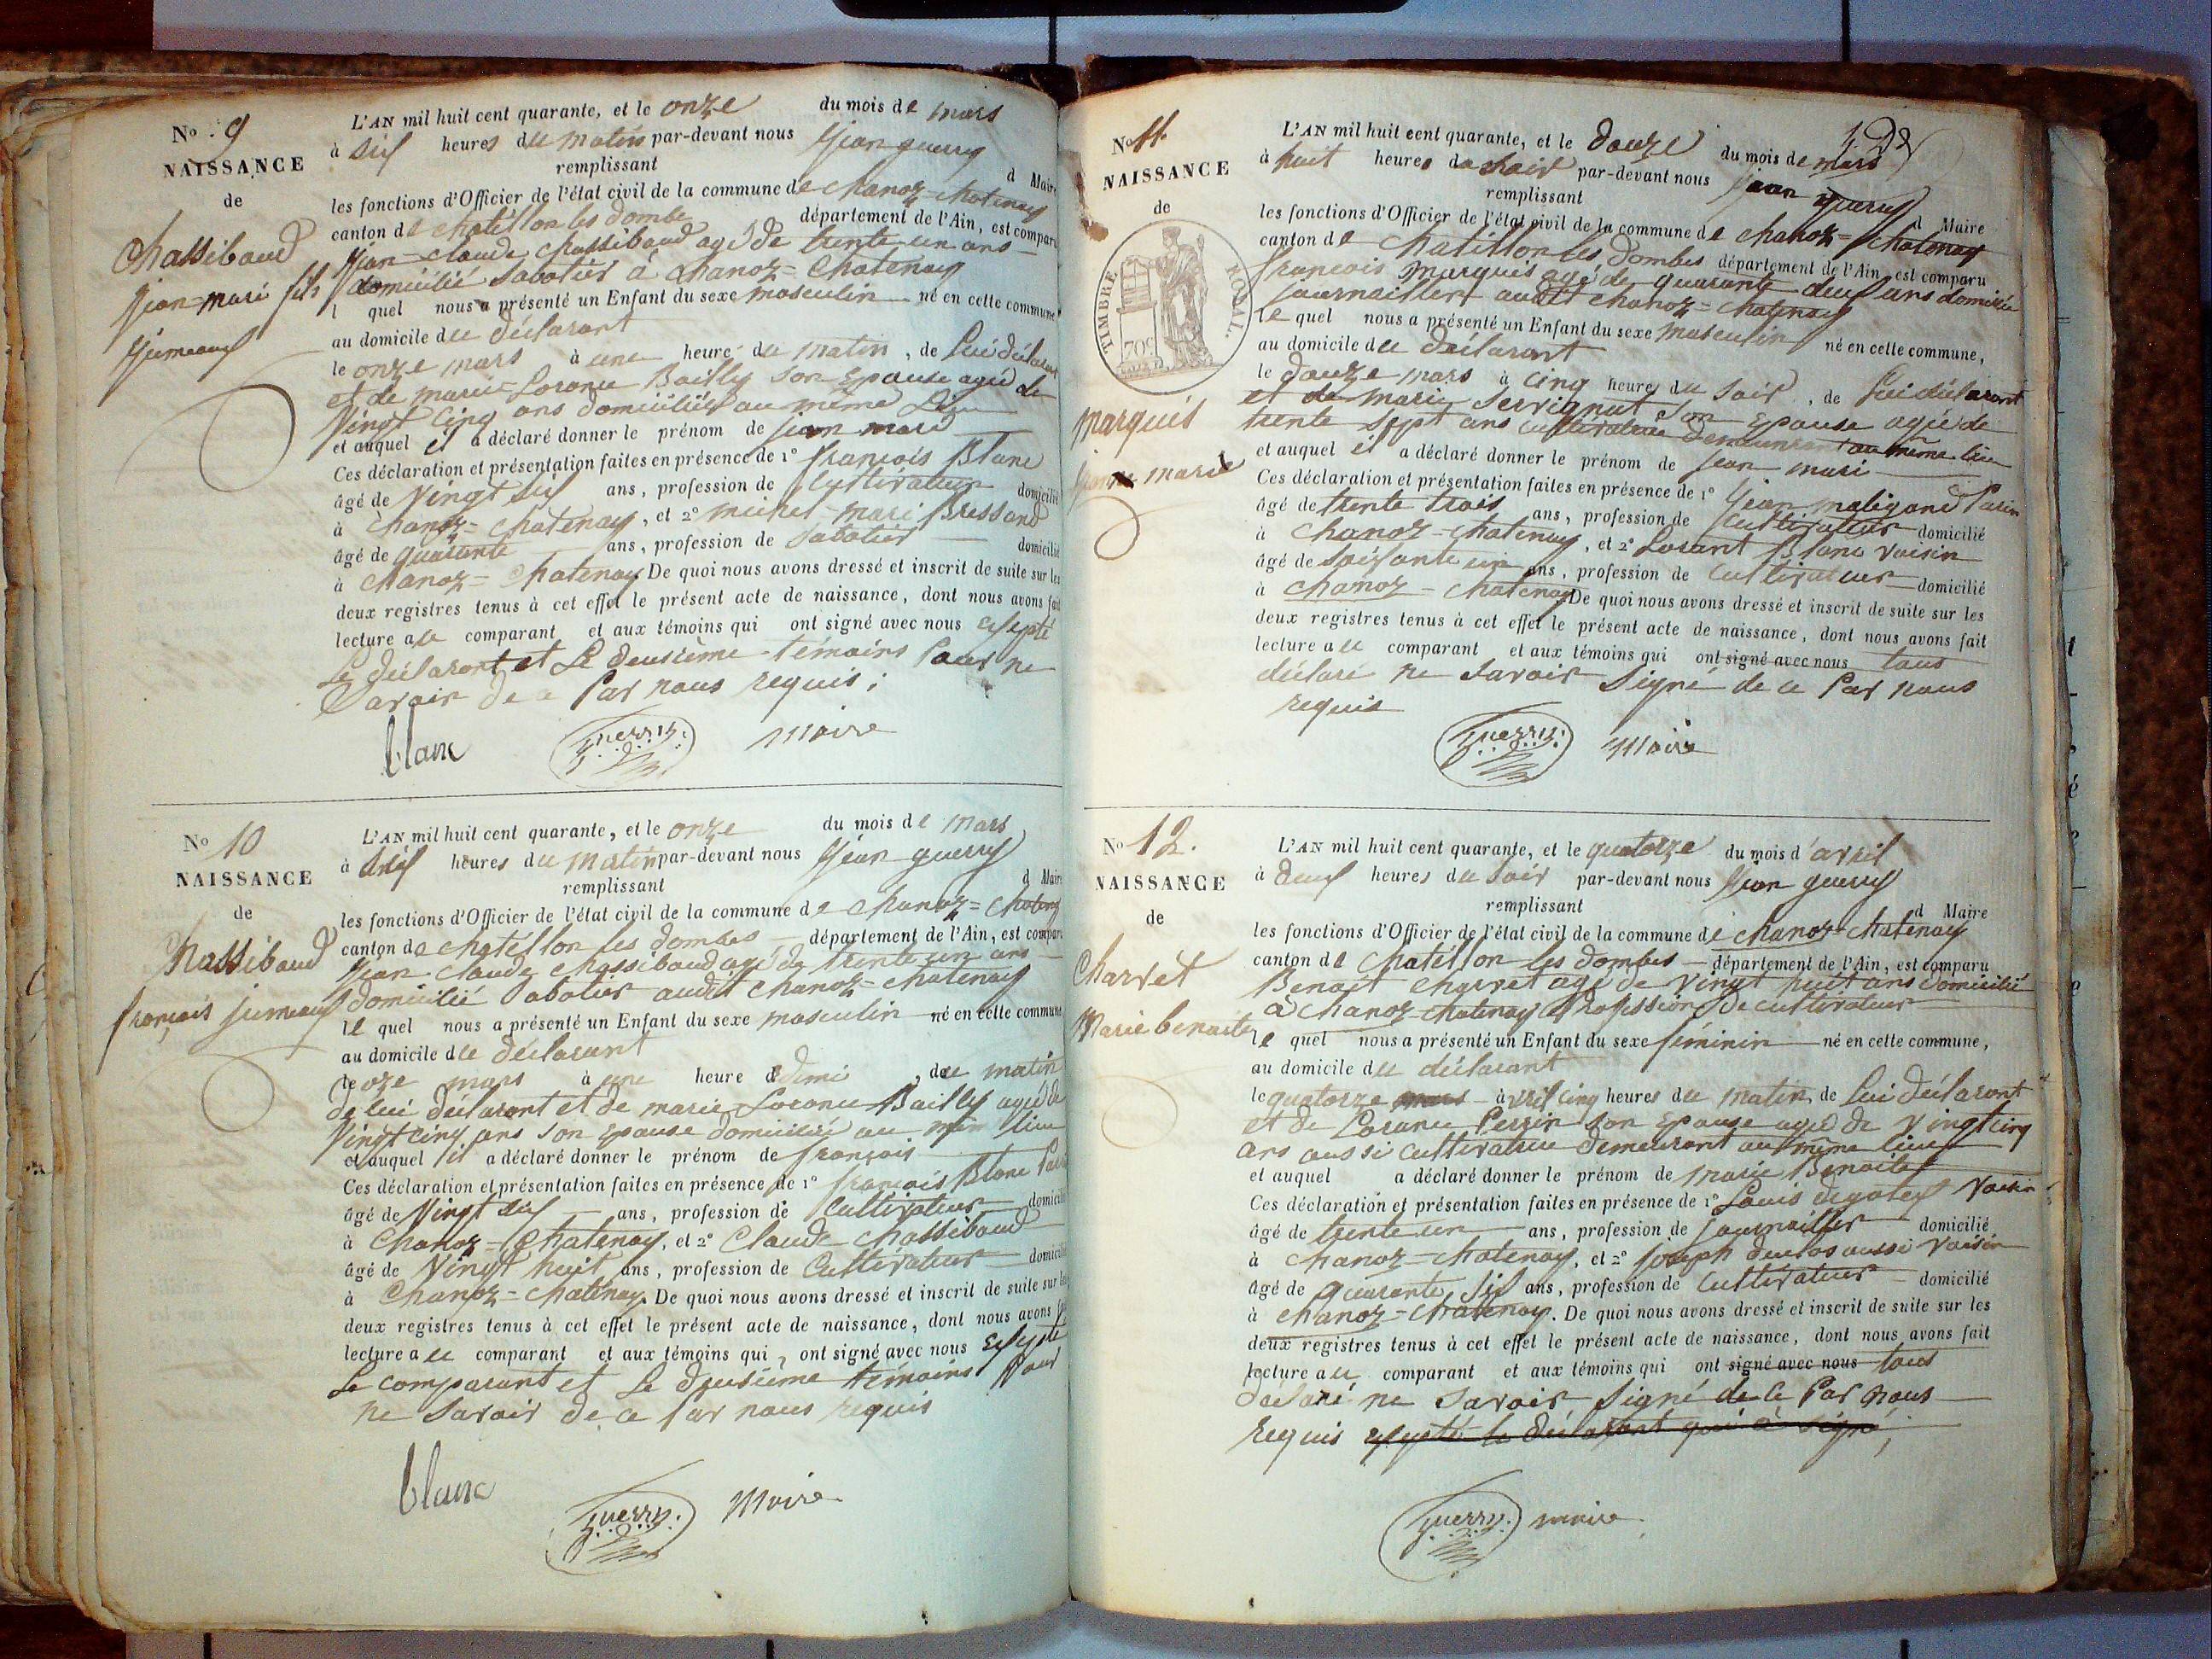 No 9
NAISSANCE
de
Chassibaud
Jean-mari fils
Jumeaux
L'AN mil huit cent quarante, et le onze du mois de mars
à six heures du matin par-devant nous Jean guerry
remplissant d Maire
les fonctions d'Officier de l'état civil de la commune de Chanoz=Chatenay
canton de Chatéllon les dombe département de l'Ain, est comparu
Jean-Claude Chassibaud agé de trente un ans
domicilié Sabotier à Chanoz=Chatenay
l quel nous a présenté un Enfant du sexe masculin né en cette commune
au domicile du déclarant
le onze mars à une heure du matin, de Lui déclarant
et de marie Loranse Bailly son Epouse agée de
Vingt Cinq ans domiciliés au même Lieu
et auquel il a déclaré donner le prénom de jean mari
Ces déclaration et présentation faites en présence de 1° françois Blanc
âgé de Vingt six ans, profession de Cultivateur domicilié
à Chanoz=Chatenay, et 2° michel-mari Bressand
âgé de quarante ans, profession de Sabotier domicilié
à Chanoz=Chatenay De quoi nous avons dressé et inscrit de suite sur les
deux registres tenus à cet effet le présent acte de naissance, dont nous avons fait
lecture au comparant et aux témoins qui ont signé avec nous exsepté
Le déclarant et Le deusième témoins Pour ne
Savoir de ce Par nous requis;
blanc guerry maire
No 10
NAISSANCE
de
Chassibaud
françois jumeaux
L'AN mil huit cent quarante, et le onze du mois de mars
à six heures du matin par-devant nous Jean guerry
remplissant d Maire
les fonctions d'Officier de l'état civil de la commune de Chanoz=Chatenay
canton de Chatéllon les dombes département de l'Ain, est comparu
Jean Claude Chassibaud agé de trente un ans
domicilié Sabotier audit Chanoz-Chatenay
le quel nous a présenté un Enfant du sexe masculin né en cette commune
au domicile du déclarant
le oze mars à une heure & demi, du matin
de lui déclarant et de marie Loranse Bailly agée de
Vingt cinq ans son Epouse domicilié au mêm lieu
et auquel il a déclaré donner le prénom de françois
Ces déclaration et présentation faites en présence de 1° françois Blanc
âgé de Vingt six ans, profession de Cultivateur domicilié
à Chanoz-Chatenay, et 2° Claude Chassibaud
âgé de Vingt huit ans, profession de Cultivateur domicilié
à Chanoz-Chatenay. De quoi nous avons dressé et inscrit de suite sur les
deux registres tenus à cet effet le présent acte de naissance, dont nous avons fait
lecture au comparant et aux témoins qui ont signé avec nous Exsepté
Le comparant et Le deusième témoins Pour
ne Savoir de ce Par nous requis
blanc guerry maire
No 11.
NAISSANCE
de
TIMBRE ROYAL.
70c
Marquis
jean marie
L'AN mil huit cent quarante, et le douze du mois de mars
à huit heures du soir par-devant nous Jean guerry
remplissant d Maire
les fonctions d'Officier de l'état civil de la commune de Chanoz=Chatenay
canton de Chatillon les Dombes département de l'Ain, est comparu
françois Marquis agé de quarante deux ans domicilié
journaillier audit Chanoz=Chatenay
le quel nous a présenté un Enfant du sexe masculin né en cette commune,
au domicile du déclarant
le douze mars à cinq heures du soir, de Lui déclarant
et de marie Servignat son Epouse agée de
trente sept ans cultivatrice demeurant au même lieu
et auquel il a déclaré donner le prénom de jean mari
Ces déclaration et présentation faites en présence de 1° Jean maligand Parin
âgé de trente trois ans, profession de Cultivateur domicilié
à Chanoz-Chatenay, et 2° Lorant Blanc voisin
âgé de Soixante un ans, profession de Cultivateur domicilié
à Chanoz-Chatenay De quoi nous avons dressé et inscrit de suite sur les
deux registres tenus à cet effet le présent acte de naissance, dont nous avons fait
lecture au comparant et aux témoins qui ont signé avec nous tous
déclaré ne Savoir Signé de ce Par nous
requis
guerry maire
No 12.
NAISSANCE
de
Charvet
Marie benoite
L'AN mil huit cent quarante, et le quatorze du mois d'avril
à deux heures du Soir par-devant nous Jean guerry
remplissant d Maire
les fonctions d'Officier de l'état civil de la commune de Chanoz-Chatenay
canton de Chatéllon les Dombes département de l'Ain, est comparu
Benoit Charvet agé de Vingt huit ans domicilié
à Chanoz-Chatenay Profession de cultivateur
le quel nous a présenté un Enfant du sexe féminin né en cette commune,
au domicile du déclarant
le quatorze mars avril cinq heures du matin de Lui déclarant
et de Loranse Perrin son Epouse agée de Vingt cinq
ans aussi cultivatrice demeurant au même lieu
et auquel a déclaré donner le prénom de marie Benoite
Ces déclaration et présentation faites en présence de 1° Louis Voisin
âgé de trente un ans, profession de journaillier domicilié
à Chanoz-Chatenay, et 2° Joseph duclos aussi Voisin
âgé de quarante six ans, profession de Cultivateur domicilié
à Chanoz-Chatenay. De quoi nous avons dressé et inscrit de suite sur les
deux registres tenus à cet effet le présent acte de naissance, dont nous avons fait
lecture au comparant et aux témoins qui ont signé avec nous tous
déclaré ne Savoir Signé de ce Par nous
requis exsepté le déclarant qui à signé;
guerry maire